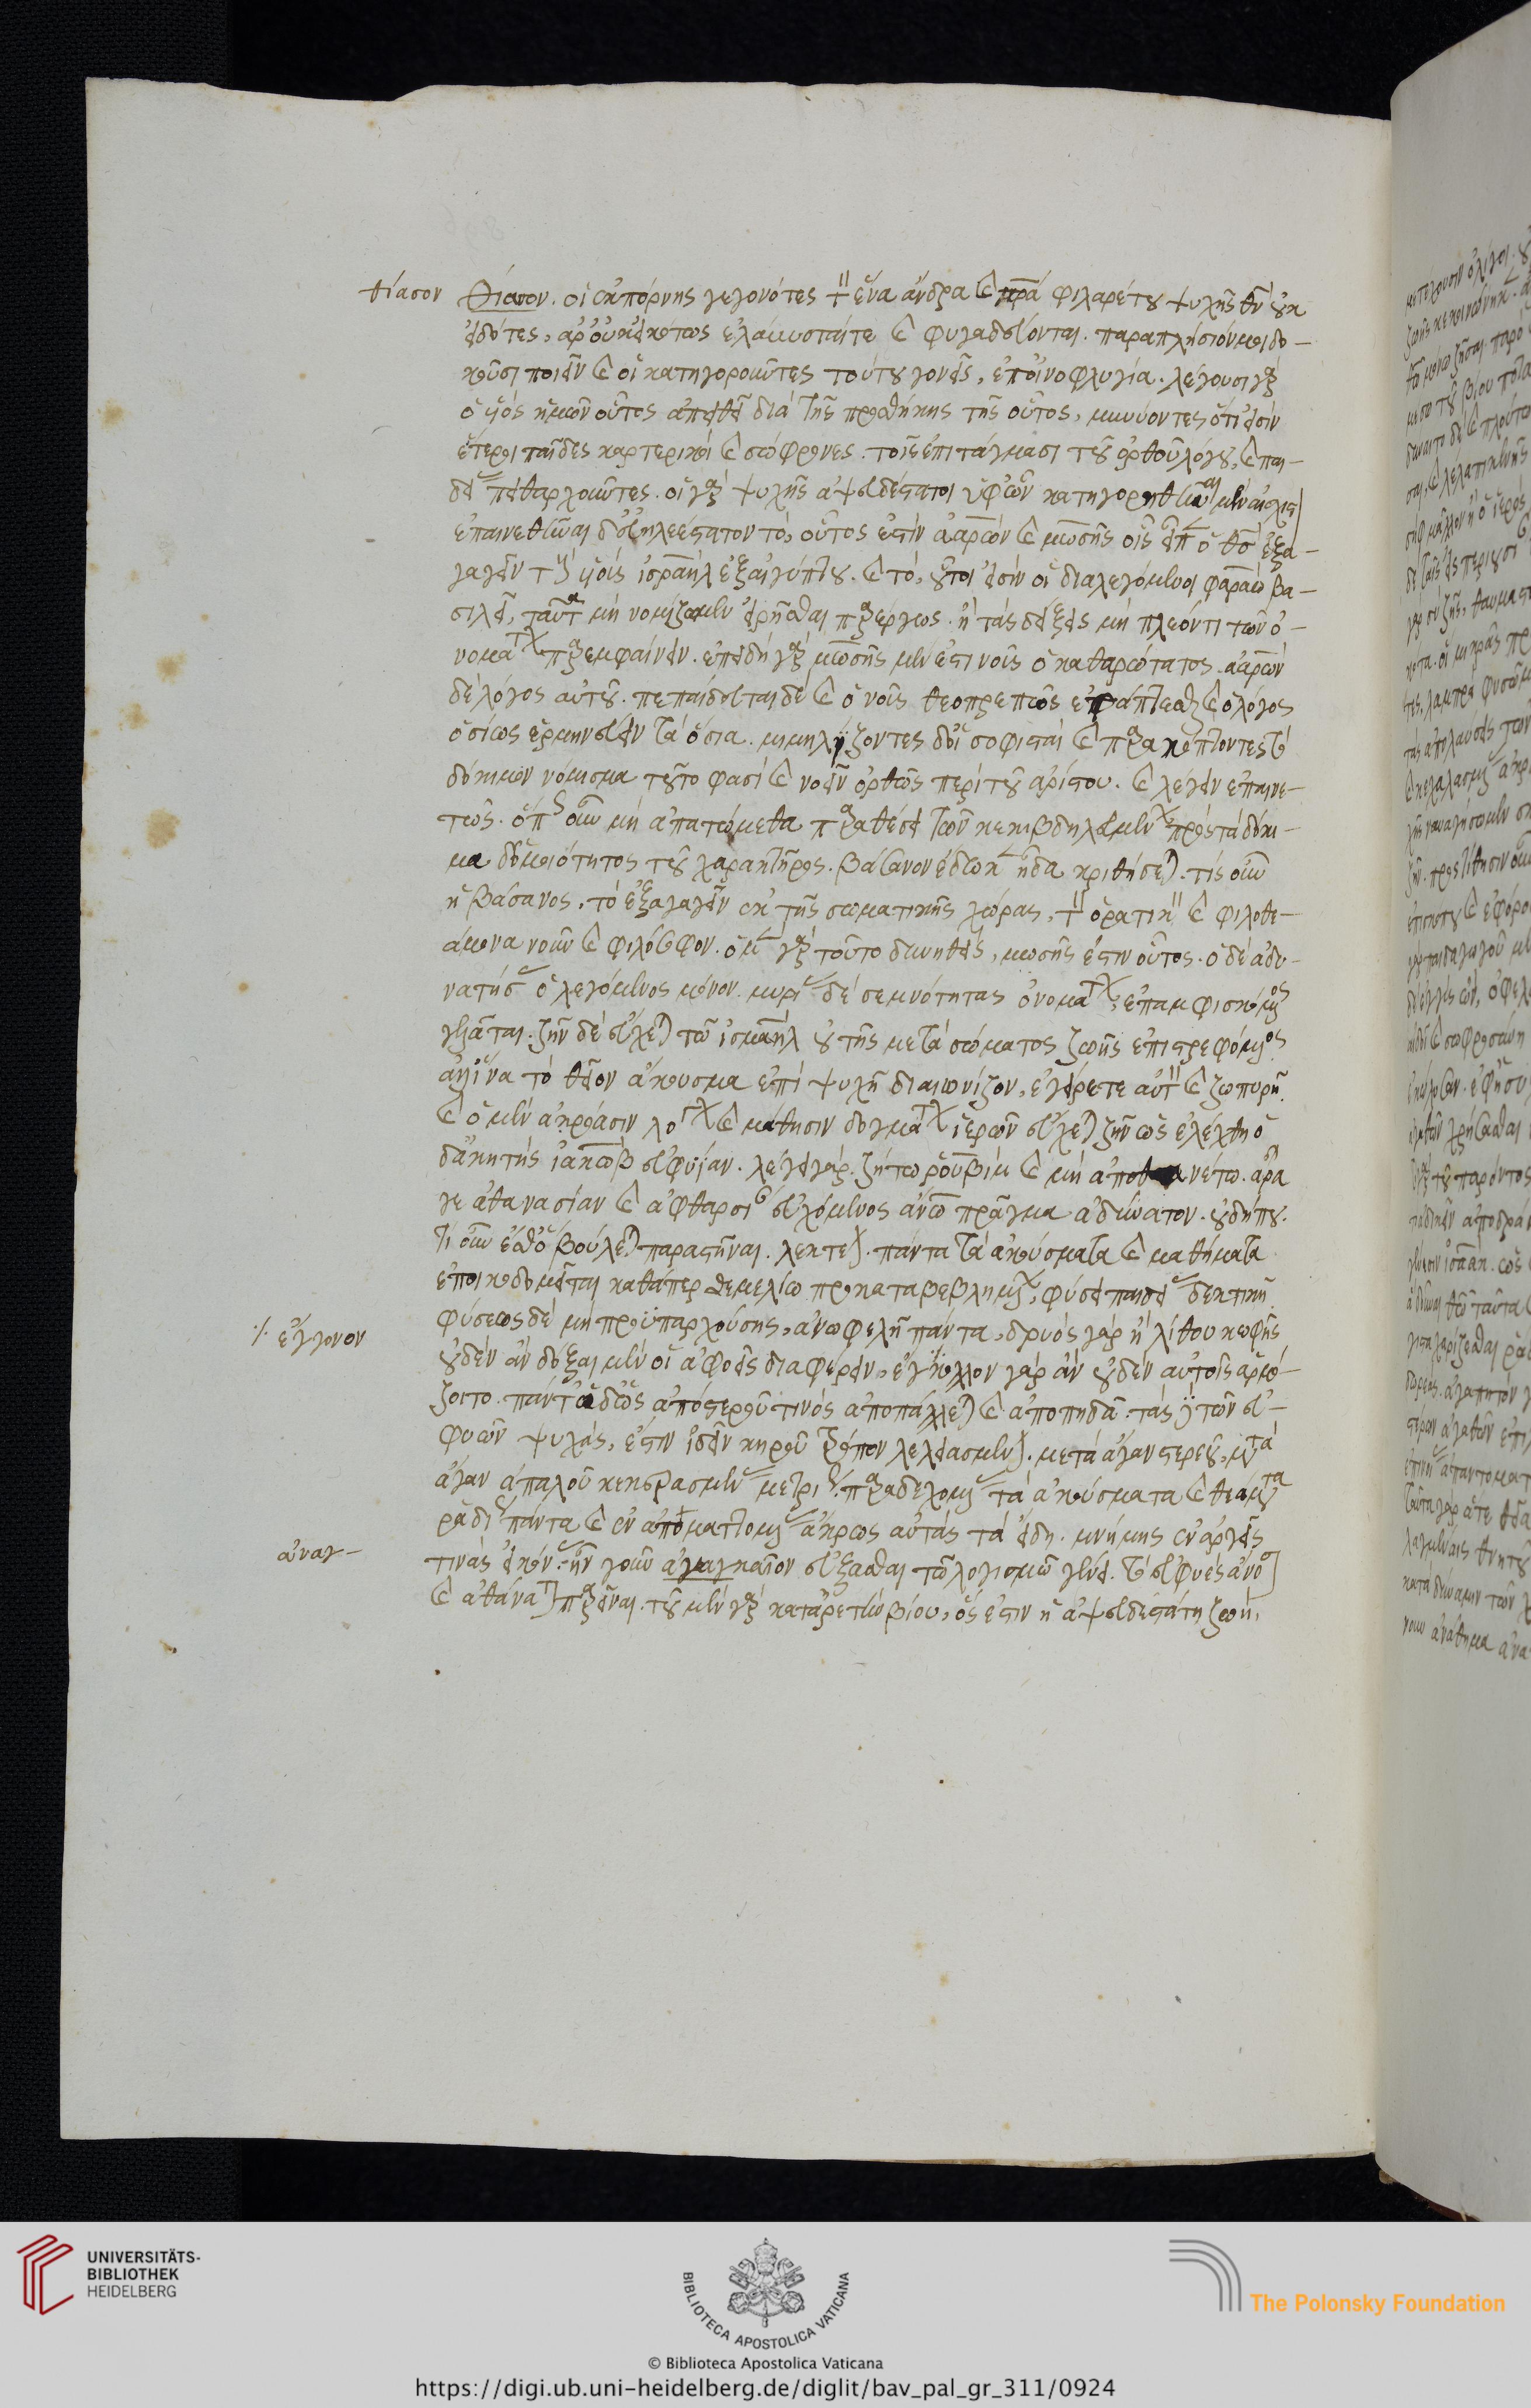 θίασον
θίασον. οἱ ἐκ πόρνης γεγονότες τὸν ἕνα ἄνδρα καὶ πρα φιλαρέτου ψυχῆς θν οὐκ
εἰδότες, ἆρ' οὐκ εἰκότως ἐλαύνονταί τε καὶ φυγαδεύονται. παραπλήσιόν μοι δο-
κοῦσι ποιεῖν καὶ οἱ κατηγοροῦντες τούτου γονεῖς, ἐπ' οἰνοφλυγία. λέγουσι γὰρ
ὁ υἱὸς ἡμῶν οὗτος ἀπειθεῖ διὰ τῆς προσθήκης τῆς οὗτος, μηνύοντες ὅτι εἰσὶν
ἕτεροι παῖδες καρτερικοὶ καὶ σώφρονες. τοῖς ἐπιτάγμασι τοῦ ὀρθοῦ λόγου, καὶ παι-
δείας πειθαρχοῦντες. οἱ γὰρ ψυχῆς ἀψευδέστατοι ὑφ' ὧν κατηγορηθῆναι μὲν αἴσχιστον
ἐπαινεθῆναι δ' εὐκλεέστατον τὸ, οὗτος ἐστὶν ἀαρὼν καὶ μωσῆς οἷς εἶπεν ὁ θσ ἐξα-
γαγεῖν τοὺς υἱοὺς ἰσραὴλ ἐξ αἰγύπτου. καὶ τὸ, οὗτοι εἰσὶν οἱ διαλεγόμενοι φαραὼ βα-
σιλεῖ, ταῦτα μὴ νομίζωμεν εἰρῆσθαι παρέργως. ἢ τὰς δείξεις μὴ πλέον τι τῶν ὀ-
νομάτων παρεμφαίνειν. ἐπειδὴ γὰρ μωσῆς μὲν ἐστι νοῦς ὁ καθαρώτατος, ἀαρὼν
δὲ λόγος αὐτοῦ. πεπαίδευται δὲ καὶ ὁ νοῦς θεοπρεπῶς ἐφάπτεσθαι καὶ ὁ λόγος
ὁσίως ἑρμηνεύειν τὰ ὅσια. μιμηλάζοντες δ' οἱ σοφισταὶ καὶ παρακόπτοντες τὸ
δόκιμον νόμισμα τοῦτο φασὶ καὶ νοεῖν ὀρθῶς περὶ τοῦ ἀρίστου. καὶ λέγειν ἐπαινε-
τῶς. ὅπως οὖν μὴ ἀπατώμεθα παραθέσει τῶν κεκιβδηλευμένων πρὸς τὰ δόκι-
μα δι' ὁμοιότητος τοῦ χαρακτῆρος. βάσανον ἔδωκεν ᾗ διακριθήσεται. τίς οὖν
ἡ βάσανος, τὸ ἐξαγαγεῖν ἐκ τῆς σωματικῆς χώρας, τὸν ὁρατικὸν καὶ φιλοθε-
άμονα νοῦν καὶ φιλόσοφον. ὁ μὲν γὰρ τοῦτο δυνηθεὶς, μωσῆς ἐστιν οὗτος. ὁ δὲ ἀδυ-
νατήσας ὁ λεγόμενος μόνον. μυρίας δὲ σεμνότητας ὀνομάτων, ἐπαμφισκόμενος
χλιᾶται. ζῆν δὲ εὔχεται τῶ ἰσμαὴλ οὐ τῆς μετὰ σώματος ζωῆς ἐπιστρεφόμενος
ἀλλ' ἵνα τὸ θεῖον ἄκουσμα ἐπὶ ψυχῆ διαιωνίζον, ἐγείρετε αὐτὸν καὶ ζωπυρῆ.
καὶ ὁ μὲν ἀκρόασιν λόγων καὶ μάθησιν δογμάτων ἱερῶν εὔχεται ζῆν ὡς ἐλέχθη ὁ
δ' ἀσκητὴς ἰακὼβ εὐφυίαν. λέγει γὰρ. ζήτω ρουβὶμ καὶ μὴ ἀποθανέτω. ἆρα
γε ἀθανασίαν καὶ ἀφθαρσίαν εὐχόμενος ἀνω πρᾶγμα ἀδύνατον. οὐδήπου.
τί οὖν ἐσθ' ὃ βούλεται παραστῆναι. λεκτέον. πάντα τὰ ἀκούσματα καὶ μαθήματα
ἐποικοδομεῖται καθάπερ θεμελίω προκαταβεβλημένω, φύσει παιδείας δεκτικῆ.
φύσεως δὲ μὴ προϋπαρχούσης, ἀνωφελῆ πάντα, δρυὸς γὰρ ἢ λίθου κωφῆς
·/. ἔγγονον
οὐδὲν ἂν δόξαι μὲν οἱ ἀφυεῖς διαφέρειν, ἔγκολλον γὰρ ἂν οὐδὲν αὐτοῖς ἁρμό-
ζοιτο. πάντα δ' ὡς ἀπὸ στερροῦ τινὸς ἀποπάλλεται καὶ ἀποπηδᾶ. τὰς δὲ τῶν εὐ-
φυῶν ψυχὰς, ἐστιν ἰδεῖν κηροῦ τρόπον λελειασμένου. μετὰ ἄγαν στερεοῦ, μετὰ
ἄγαν ἁπαλοῦ κεκερασμένας μετρίως. παραδεχομένας τὰ ἀκούσματα καὶ θεάματα
ραδίως πάντα καὶ ἐναποματτομένας ἄκρως αὐτὰς τὰ εἴδη. μνήμης ἐναργεῖς
ἀναγ-
τινὰς εἰκόνας. ἦν γοῦν ἀγαγκαῖον εὔξασθαι τῶ λογισμῶ γένει. τὸ εὐφυὲς ἄνοσον
καὶ ἀθάνατον παρεῖναι. τοῦ μὲν γὰρ κατ' ἀρετὴν βίου, ὅς ἐστιν ἡ ἀψευδεστάτη ζωή,
UNIVERSITÄTS-
BIBLIOTHEK
HEIDELBERG
BIBLIOTECA APOSTOLICA VATICANA
The Polonsky Foundation
© Biblioteca Apostolica Vaticana
https://digi.ub.uni-heidelberg.de/diglit/bav_pal_gr_311/0924